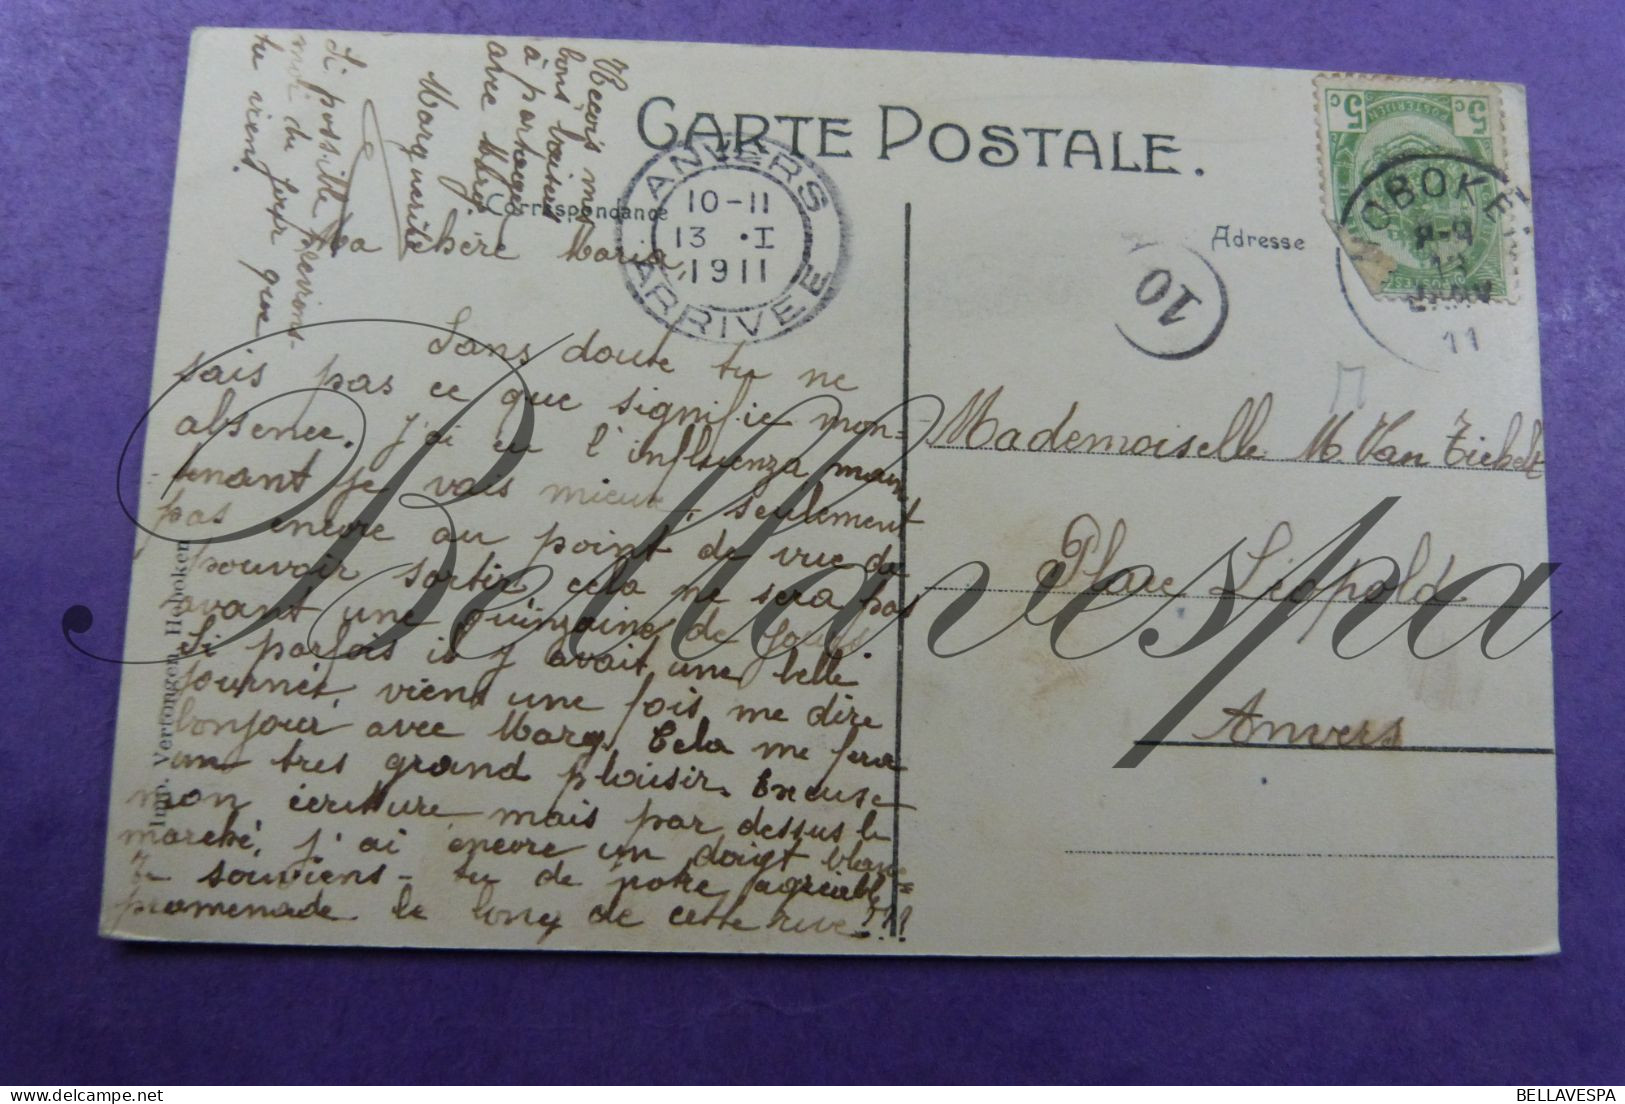 CARTE POSTALE.
Correspondance
Adresse
ANVERS
10-11
13 · I
1911
ARRIVEE
10
5c 5c
POSTERIJEN
HOBOKEN
8-9
13
JANV
11
Ma chère Maria,
Sans doute tu ne
sais pas ce que signifie mon-
absence. J'ai eu l'influenza, main
tenant je vais mieux, seulement
pas encore au point de vue de
pouvoir sortir cela ne sera pas
avant une quinzaine de jours.
Si parfois il y avait une belle
journée, viens une fois me dire
bonjour avec Mary. Cela me fera
un tres grand plaisir. Excuse
mon écriture mais par dessus le
marché, j'ai encore un doigt blanc=
Te souviens-tu de notre agréable
promenade le long de cette rive???
Reçois mes
bons baisers
à partager
avec Mary
Marguerite
Si possible préviens-
moi du jour que
tu viens.
Mademoiselle M. Van Tichelt
Place Léopold
Anvers
Imp. Vertongen, Hoboken
Bellavespa
BELLAVESPA